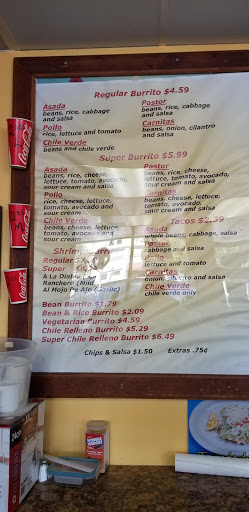 Regular Burrito $4.59
Asada
beans, rice, cabbage
and salsa
Pollo
rice, lettuce and tomato
Chile Verde
beans and chile verde
Pastor
beans, rice, cabbage
and salsa
Carnitas
beans, onion, cilantro
and salsa
Super Burrito $5.99
Asada
beans, rice, cheese,
lettuce, tomato, avocado,
sour cream and salsa
Pollo
rice, cheese, lettuce,
tomato, avocado and
sour cream
Chile Verde
beans, cheese, lettuce,
tomato, avocado and
sour cream
Pastor
beans, rice, cheese,
lettuce, tomato, avocado,
sour cream and salsa
Carnitas
beans, cheese, lettuce,
tomato, avocado, sour
cream and salsa
Tacos $2.39
Asada
whole beans, cabbage, salsa
Pastor
cabbage and salsa
Pollo
lettuce and tomato
Carnitas
onion, cilantro and salsa
Chile Verde
chile verde only
Shrimp
Regular
Super
A La Diabla
Ranchero (Mild)
Al Mojo De Ajo (Garlic)
Bean Burrito $1.79
Bean & Rice Burrito $2.09
Vegetarian Burrito $4.59
Chile Relleno Burrito $5.29
Super Chile Relleno Burrito $6.49
Chips & Salsa $1.50 Extras .75¢
Coca-Cola
Coca-Cola
Coca-Cola